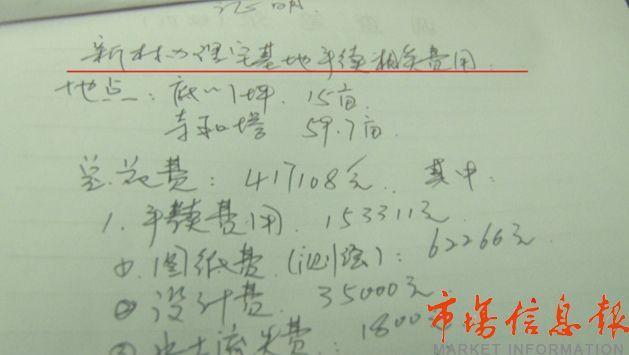 说明
新村办理宅基地手续相关费用
地点: 底川坪. 15亩.
寺和塔 59.7亩.
总花费: 417108元. 其中:
1. 手续费用. 153311元.
①. 图纸费(测绘): 62266元
② 设计费. 35000元.
③ 水土流失费: 1800
市场信息報
MARKET INFORMATION